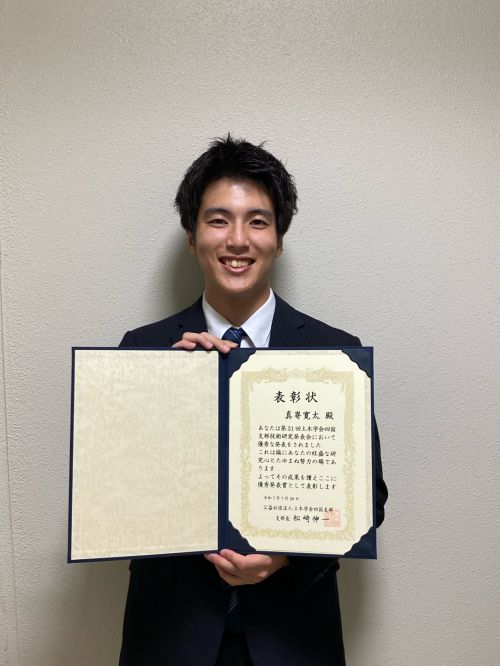 表彰状
真鴦寛太 殿
あなたは第31回土木学会四国
支部技術研究発表会において
優秀な発表をされました
これは偏にあなたの旺盛な研
究心とたゆまぬ努力の賜であ
ります
よってその成果を讃えここに
優秀発表賞として表彰します
令和7年7月28日
公益社団法人 土木学会四国支部
支部長 松崎伸一